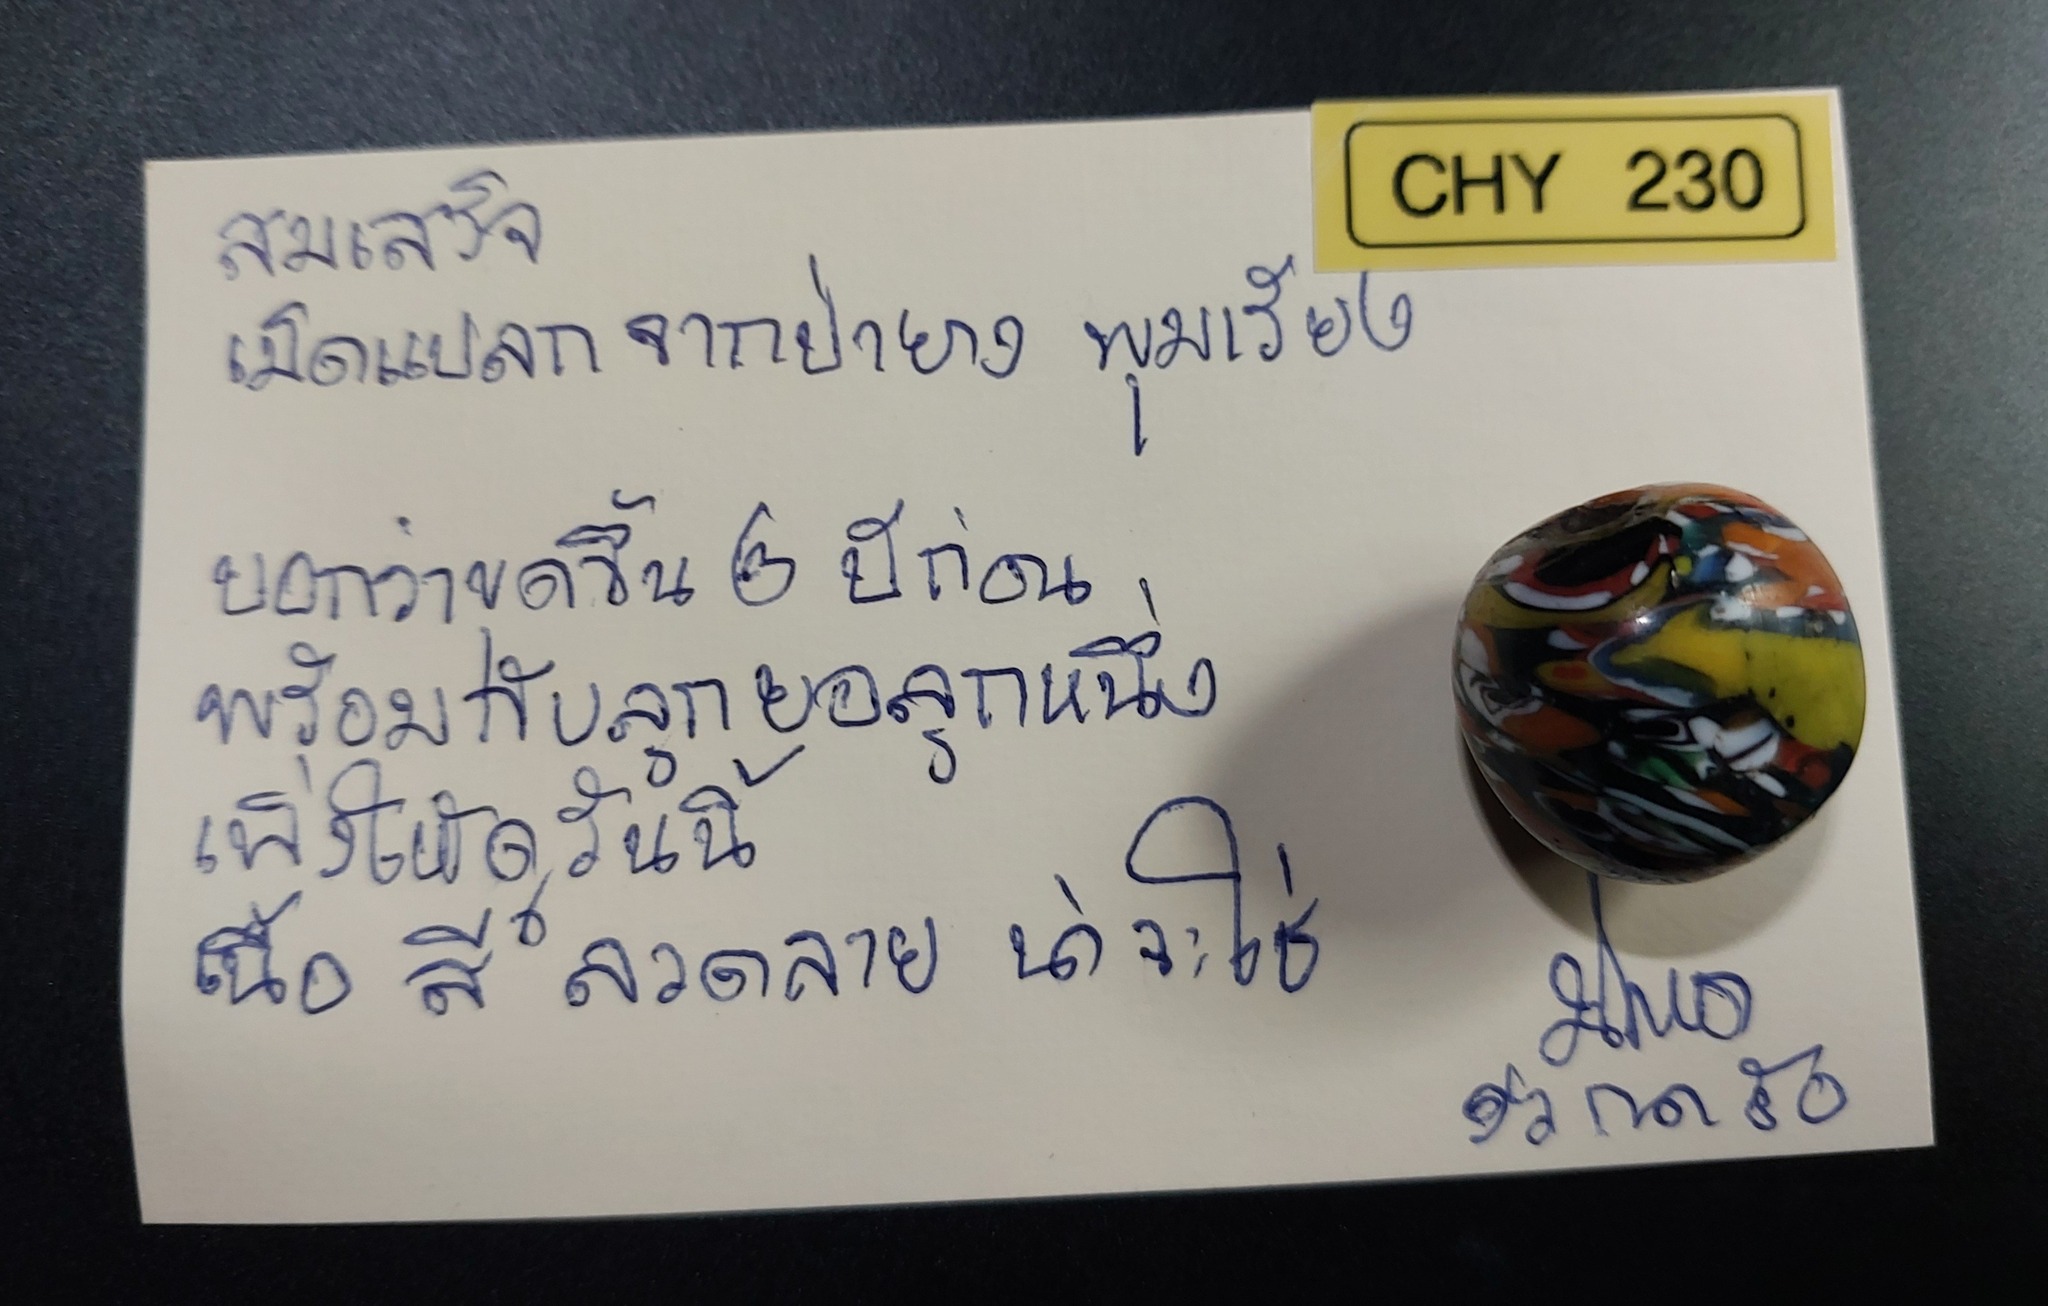 CHY 230
สมเสร็จ
เม็ดแปลก จากป่ายาง พุมเรียง
บอกว่าขุดขึ้น ๒ ปีก่อน
พร้อมกับลูกยอลูกหนึ่ง
เพิ่งให้ดูวันนี้
เนื้อ สี ลวดลาย น่าจะใช่